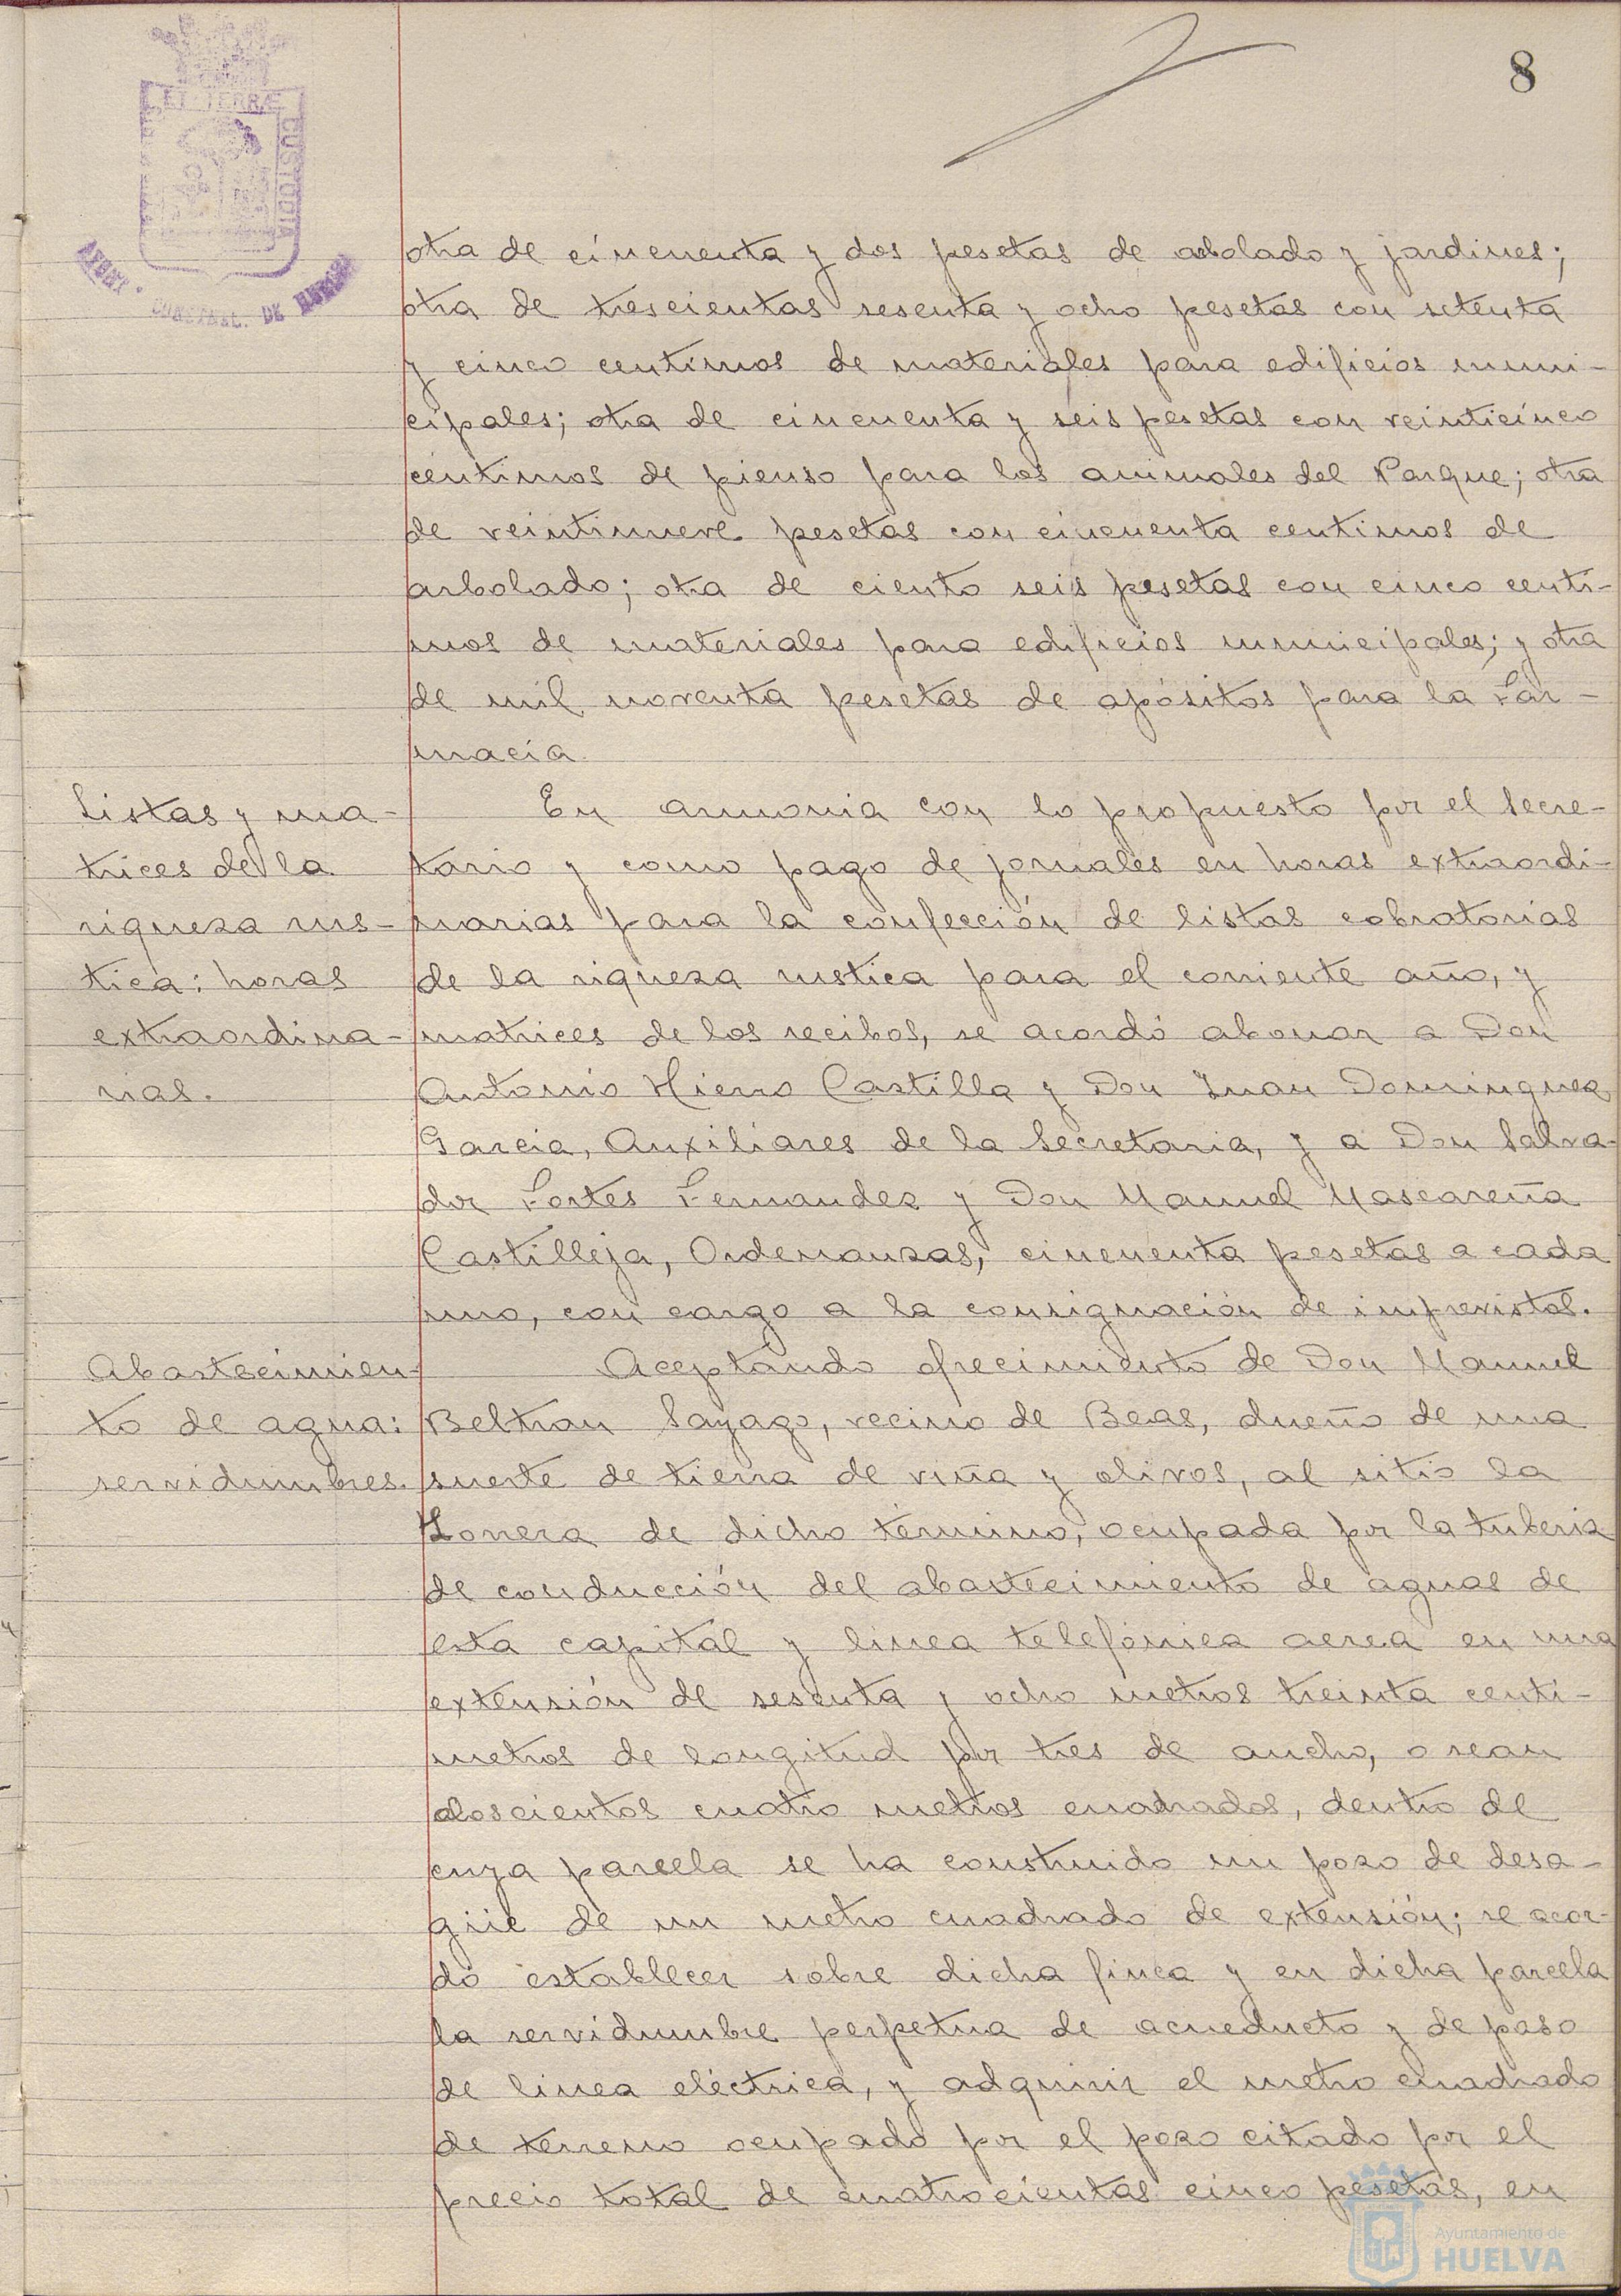 8
ET TERRÆ
CUSTODIA
AYUNT. CONSTNAL. DE HUELVA
otra de cincuenta y dos pesetas de arbolado y jardines;
otra de trescientas sesenta y ocho pesetas con setenta
y cinco centimos de materiales para edificios muni-
cipales; otra de cincuenta y seis pesetas con veinticinco
céntimos de pienso para los animales del Parque; otra
de veintinueve pesetas con cincuenta centimos de
arbolado; otra de ciento seis pesetas con cinco centi-
mos de materiales para edificios municipales; y otra
de mil noventa pesetas de apósitos para la Far-
macia.
Listas y ma-
trices de la
riqueza rus-
tica: horas
extraordina-
rias.
En armonia con lo propuesto por el Secre-
tario y como pago de jornales en horas extraordi-
narias para la confección de listas cobratorias
de la riqueza rustica para el corriente año, y
matrices de los recibos, se acordó abonar a Don
Antonio Hierro Castilla y Don Juan Dominguez
Garcia, Auxiliares de la Secretaria, y a Don Salva-
dor Fortes Fernandez y Don Manuel Mascareña
Castilleja, Ordenanzas, cincuenta pesetas a cada
uno, con cargo a la consignación de imprevistos.
Abastecimien-
to de agua:
servidumbres.
Aceptando ofrecimiento de Don Manuel
Beltran Sayago, vecino de Beas, dueño de una
suerte de tierra de viña y olivos, al sitio la
de dicho término, ocupada por la tuberia
de conducción del abastecimiento de aguas de
esta capital y linea telefónica aerea en una
extensión de sesenta y ocho metros treinta centi-
metros de longitud por tres de ancho, o sean
doscientos cuatro metros cuadrados, dentro de
cuya parcela se ha construido un pozo de desa-
güe de un metro cuadrado de extensión; se acor-
dó establecer sobre dicha finca y en dicha parcela
la servidumbre perpetua de acueducto y de paso
de linea eléctrica, y adquirir el metro cuadrado
de terreno ocupado por el pozo citado por el
precio total de cuatrocientas cinco pesetas, en
Ayuntamiento de
HUELVA